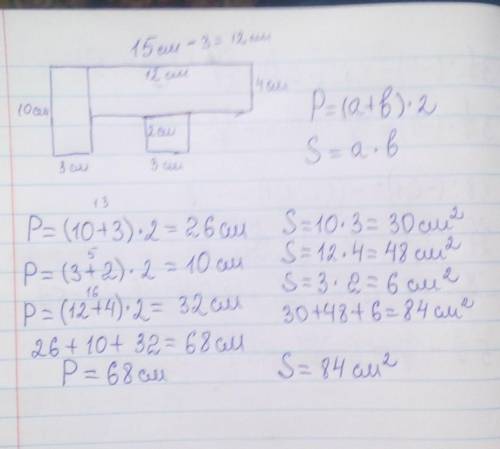 15см - 3 = 12см
12 см
4см
10см
2см
3 см
3 см
P=(a+b)·2
S=a·b
13
P=(10+3)·2=26см
5
P=(3+2)·2=10см
16
P=(12+4)·2=32см
26+10+32=68см
P=68см
S=10·3=30см²
S=12·4=48см²
S=3·2=6см²
30+48+6=84см²
S=84см²